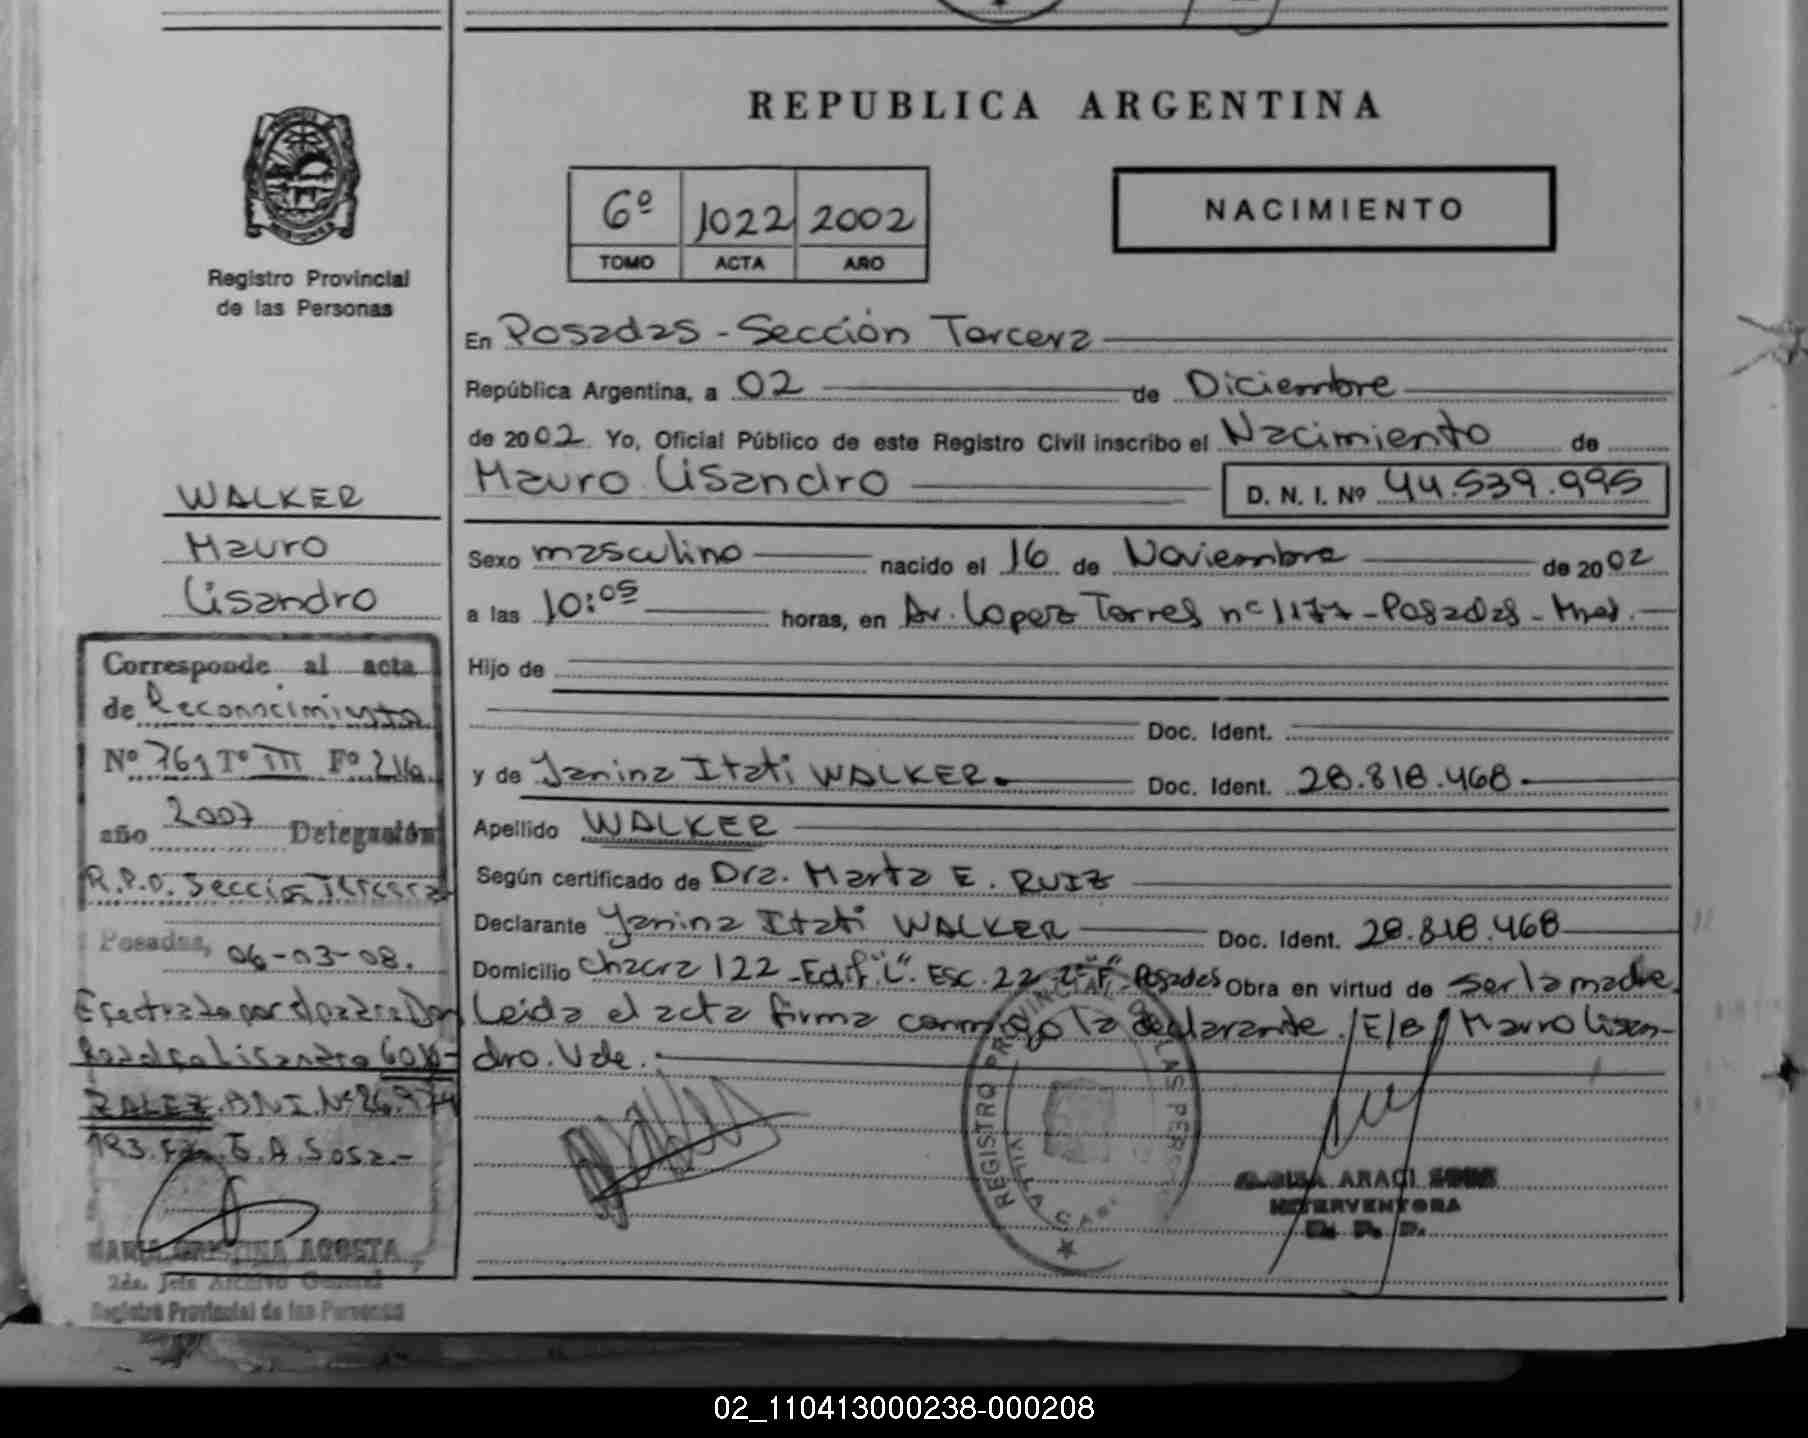 REPUBLICA ARGENTINA
6º 1022 2002
TOMO ACTA AÑO
NACIMIENTO
Registro Provincial
de las Personas
WALKER
Mauro
Lisandro
Corresponde al acta
de Reconocimiento
Nº 761 Tº III Fº 216
año 2007 Delegación
R.P.P. Sección Tercera
Posadas, 06-03-08.
Efectuado por el padre Don
Lisandro GON-
ZALEZ. D.N.I. Nº 26.974
193. A. Sosa.-
MARIA CRISTINA ACOSTA
2da. Jefe Archivo General
Registro Provincial de las Personas
En Posadas - Sección Tercera
República Argentina, a 02 de Diciembre
de 2002 Yo, Oficial Público de este Registro Civil inscribo el Nacimiento de
Mauro Lisandro D. N. I. Nº 44.539.995
Sexo masculino nacido el 16 de Noviembre de 2002
a las 10:05 horas, en Av. Lopez Torres nº 1177 - Posadas - Mnes.
Hijo de
Doc. Ident.
y de Yanina Itati WALKER. Doc. Ident. 28.818.468
Apellido WALKER
Según certificado de Dra. Marta E. RUIZ
Declarante Yanina Itati WALKER Doc. Ident. 28.818.468
Domicilio Chacra 122 - Edif. "L". Esc. 22 "F" Posadas Obra en virtud de ser la madre.
Leida el acta firma conmigo la declarante. /E/B/ Mauro Lisan-
dro. Vale.
REGISTRO PROVINCIAL DE LAS PERSONAS
ARACI
INTERVENTORA
02_110413000238-000208